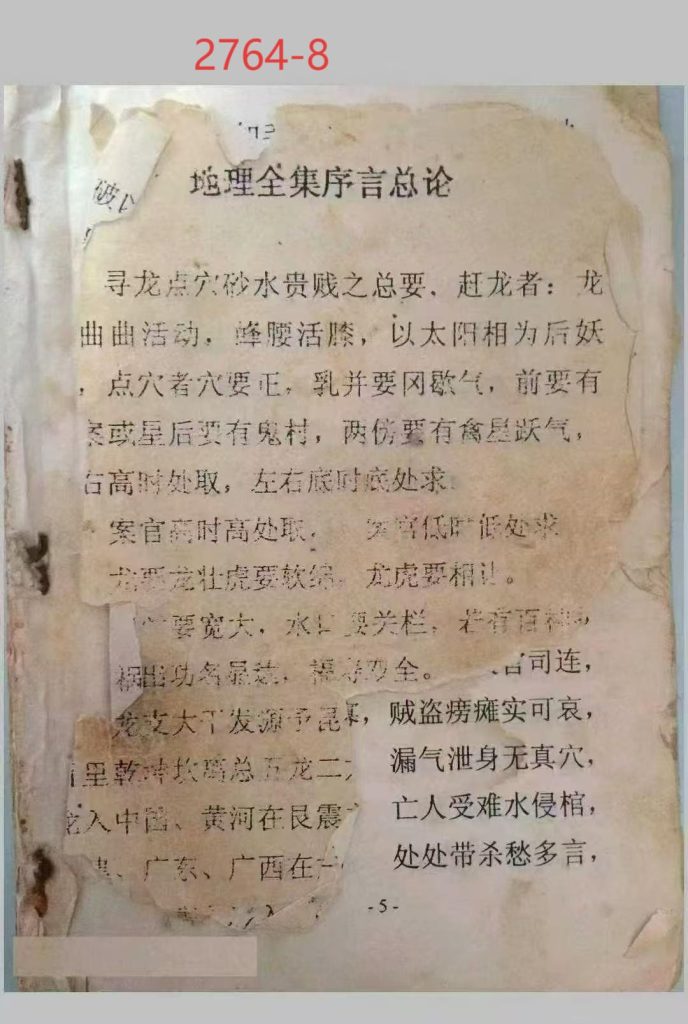 2764-8
破
地理全集序言总论
寻龙点穴砂水贵贱之总要、赶龙者：龙
曲曲活动，蜂腰活膝，以太阳相为后妖
，点穴者穴要正，乳并要冈歇气，前要有
案或星后要有鬼村，两傍要有禽星跃气，
右高时处取，左右底时底处求
案官高时高处取， 案官低时低处求
龙要龙壮虎要软绵，龙虎要相让。
要宽大，水口要关栏，若有百
出功名显达，福寿双全。 官司连，
龙支大干发源于昆 ，贼盗痨瘫实可哀，
里乾坤坎离总五龙二 漏气泄身无真穴，
龙入中国、黄河在艮震 亡人受难水侵棺，
、广东、广西在 处处带杀愁多言，
入
-5-